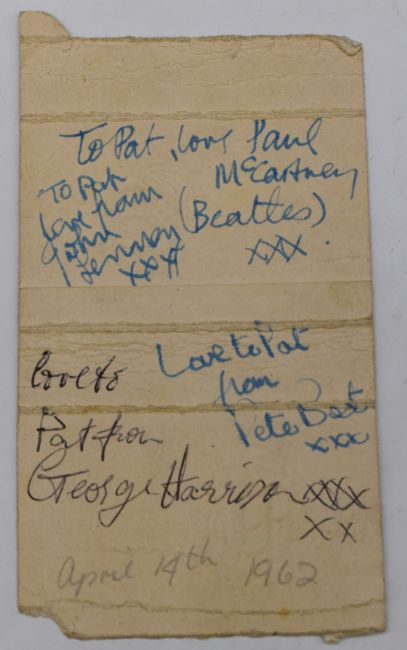 To Pat, love Paul
McCartney
(Beatles)
XXX.
To Pat
love from
John
Lennon
xxxx
Love to Pat
from
Pete Best
xxx
love to
Pat from
George Harrison XXX
X x
April 14th 1962